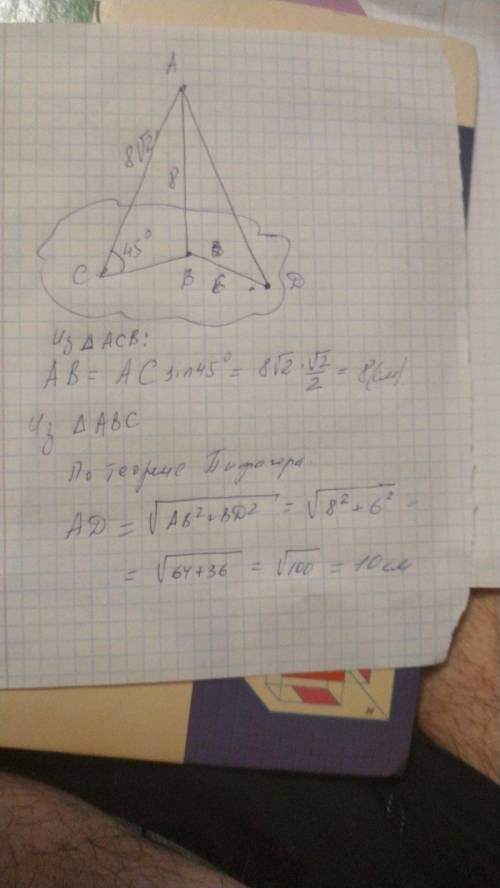 A
8√2
8
45°
C
B
6
D
Из △ACB:
AB = AC sin45° = 8√2 · √2/2 = 8(см)
Из △ABC
По теореме Пифагора
AD = √(AB² + BD²) = √(8² + 6²) =
= √(64+36) = √100 = 10см
H